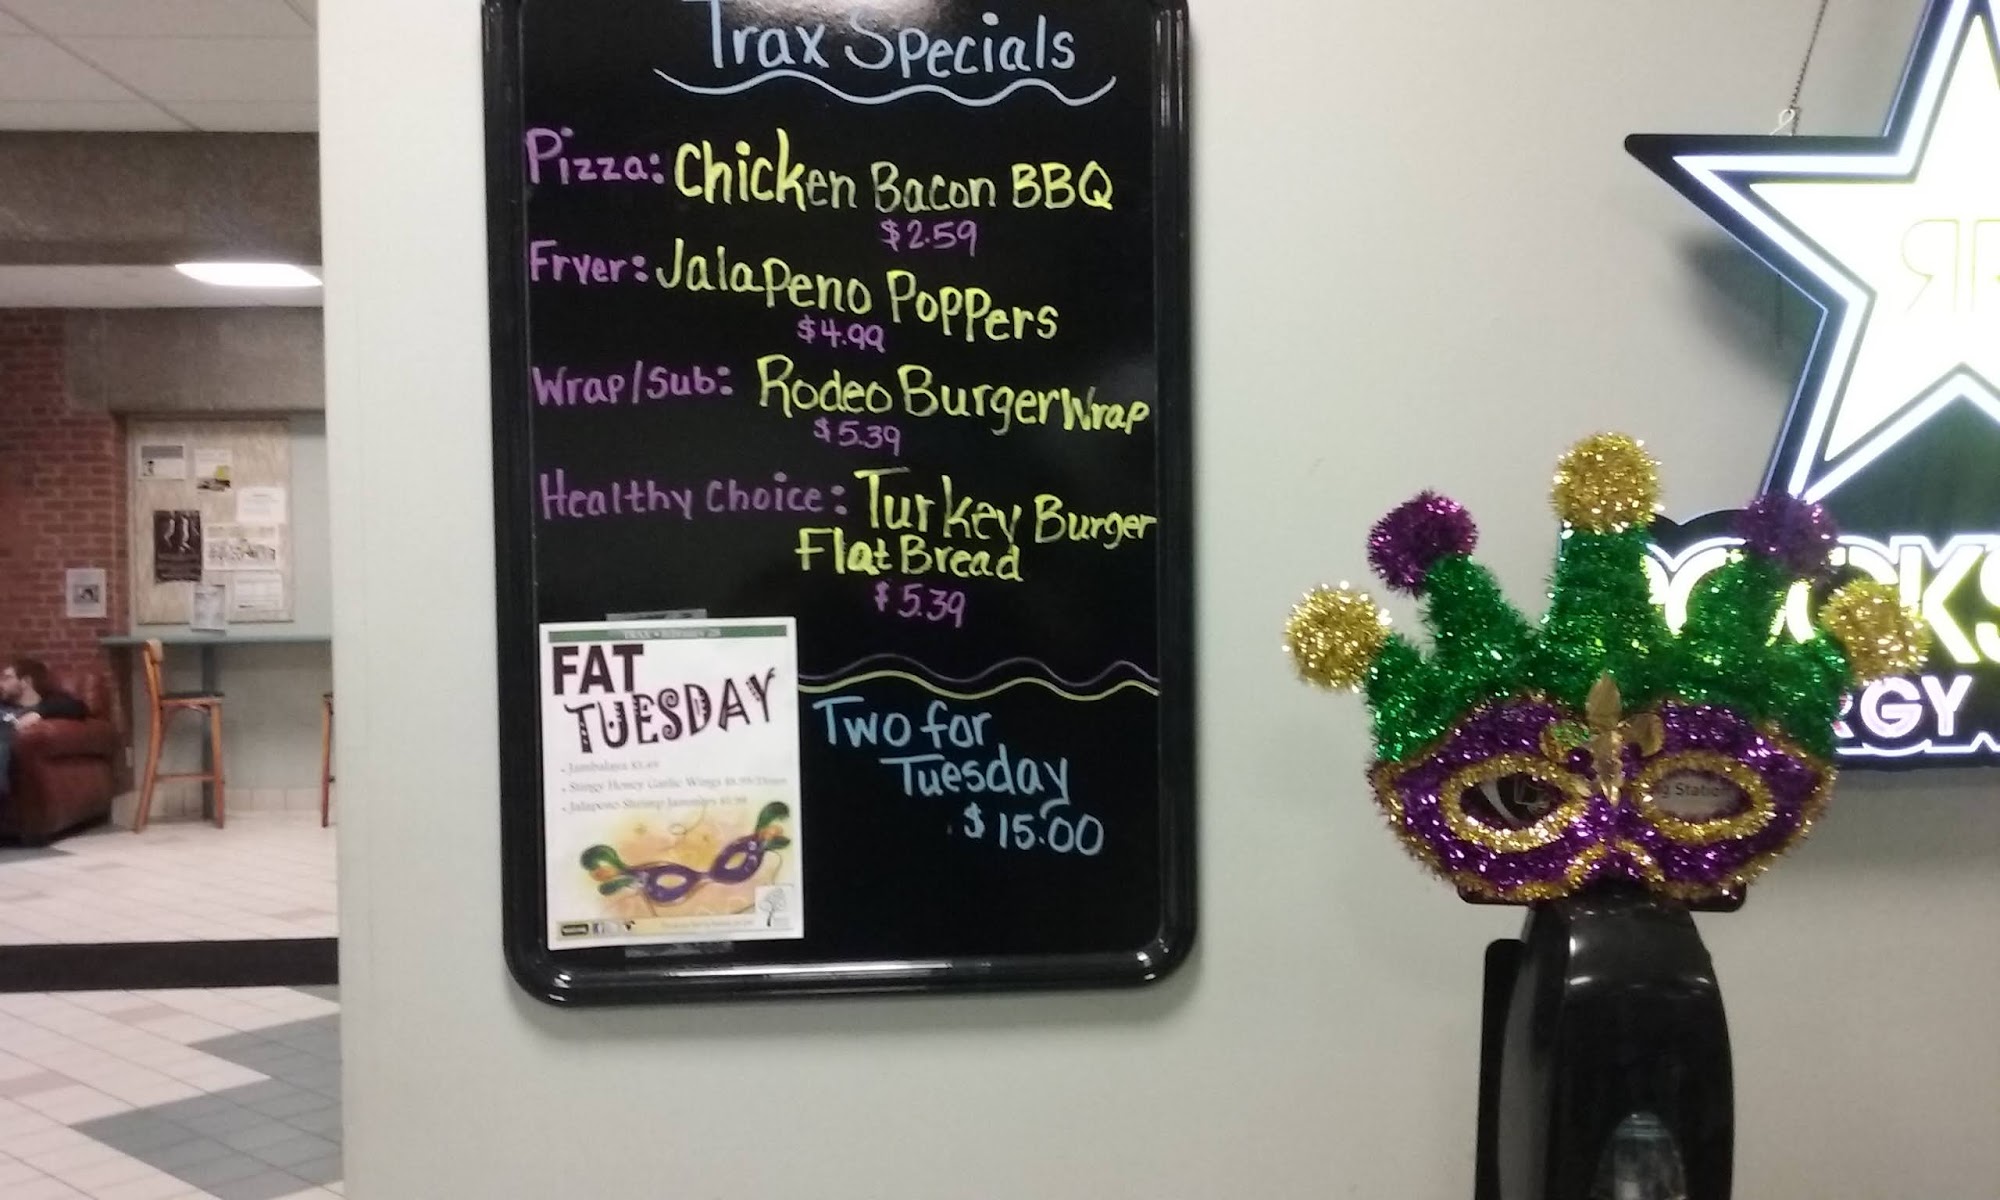 Trax Specials
Pizza: Chicken Bacon BBQ
$2.59
Fryer: Jalapeno Poppers
$4.99
Wrap/Sub: Rodeo Burger Wrap
$5.39
Healthy Choice: Turkey Burger
Flat Bread
$5.39
FAT
TUESDAY
• Jambalaya
• Stingy Honey Garlic Wings
• Jalapeno Shrimp
Two for
Tuesday
$15.00
RGY
Station